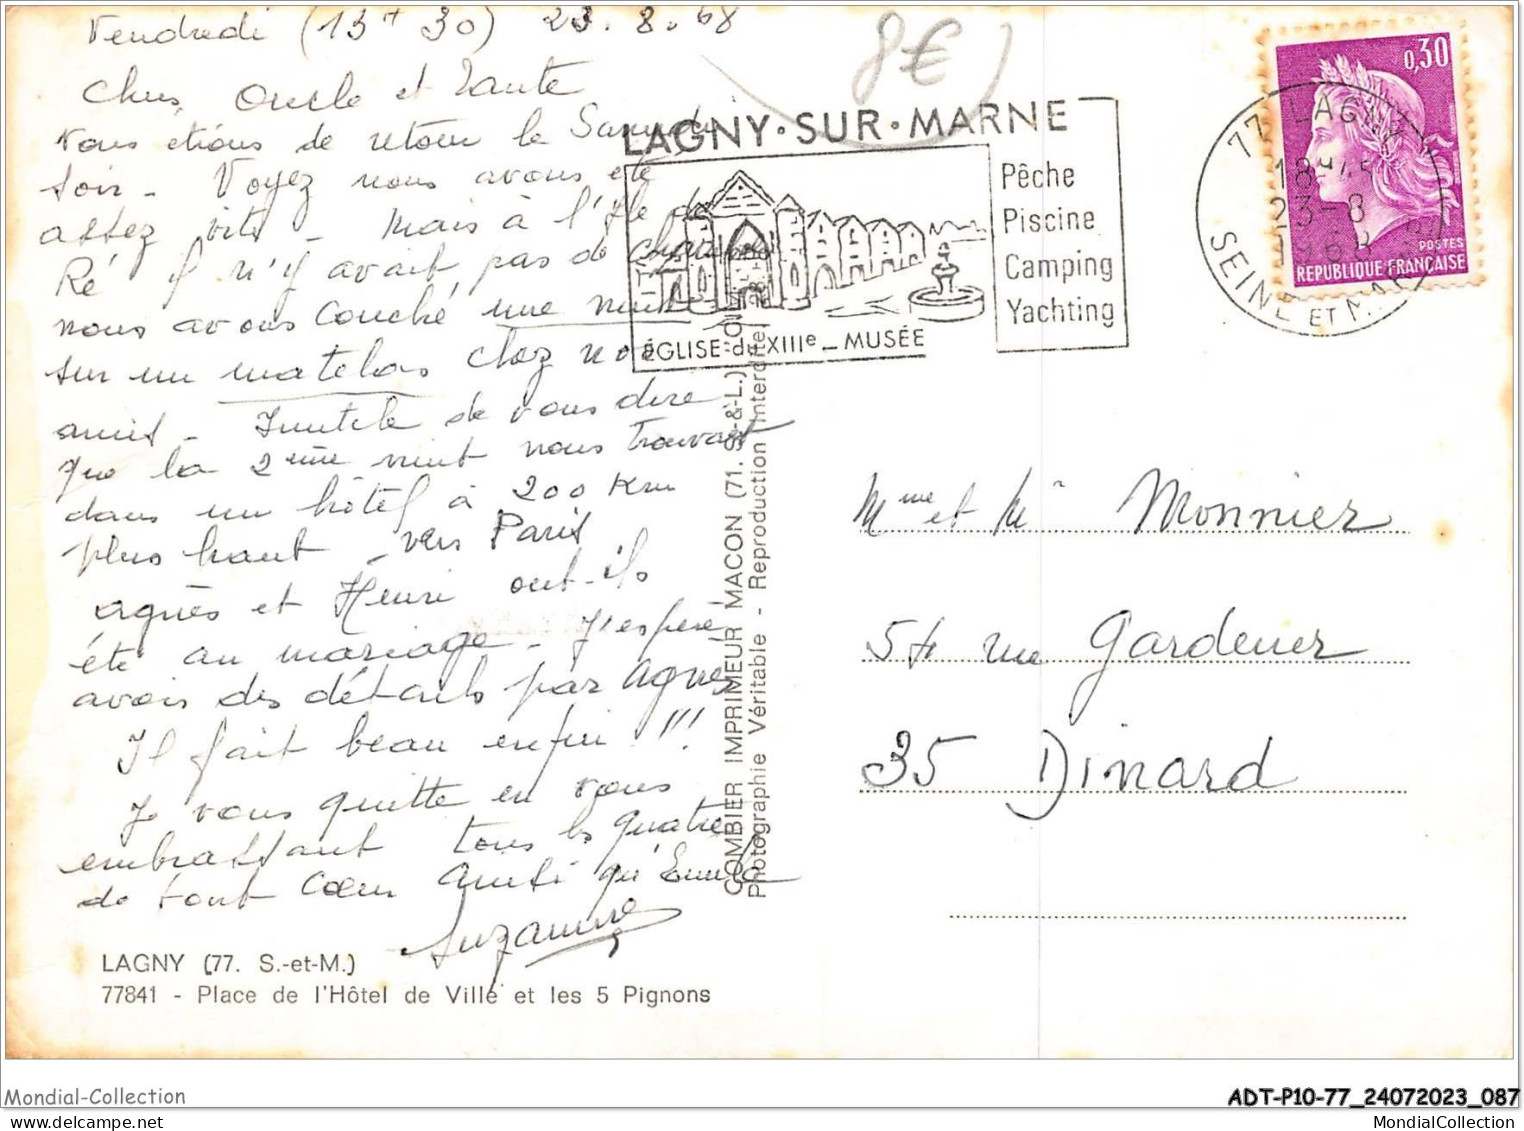 Vendredi (13h30) 23.8.68
8€
Chers Oncle et Tante
Nous étions de retour le Samedi
soir - Voyez nous avons été
assez vite - Mais à l'Ile de
Ré il n'y avait pas de chambre
nous avons couché une nuit
sur un matelas chez nos
amis - Inutile de vous dire
que la 2ème nuit nous trouvait
dans un hôtel à 200 Km
plus haut - vers Paris
Agnès et Henri ont-ils
été au mariage - J'espère
avoir des détails par Agnès
Il fait beau enfin !!!
Je vous quitte en vous
embrassant tous les quatre
de tout coeur ainsi qu'
Suzanne
LAGNY (77. S.-et-M.)
77841 - Place de l'Hôtel de Ville et les 5 Pignons
COMBIER IMPRIMEUR MACON (71. S.-&-L.)
Photographie Véritable - Reproduction Interdite
LAGNY·SUR·MARNE
Pêche
Piscine
Camping
Yachting
ÉGLISE du XIIIe - MUSÉE
0,30
POSTES
REPUBLIQUE FRANÇAISE
77 LAGNY
18H45
23-8
1968
SEINE ET MARNE
Mme et Mr Monnier
rue Gardener
35 Dinard
Mondial-Collection
ADT-P10-77_24072023_087
MondialCollection.com